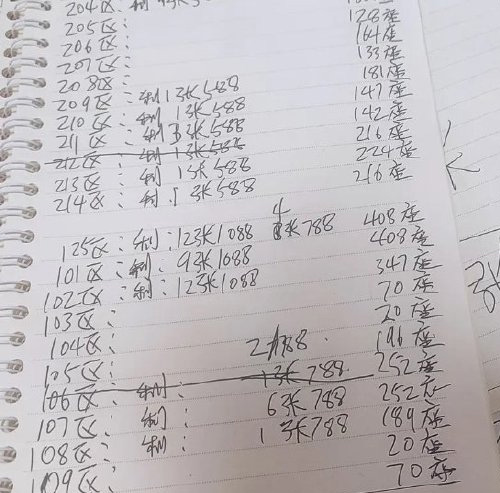 204区:
205区:
206区: 128座
207区: 164座
208区: 133座
209区: 剩13张588 181座
210区: 剩13张588 147座
211区: 剩3张588 142座
212区: 剩13张588 216座
213区: 剩15张588 224座
214区: 剩1张588 216座
125区: 剩:12张1088 4张788 408座
101区: 剩:9张1088 408座
102区: 剩:12张1088 347座
103区: 70座
104区: 20座
105区: 2张788 196座
106区: 剩: 13张788 252座
107区: 剩: 6张788 252座
108区: 剩: 1张788 189座
109区: 20座
70座